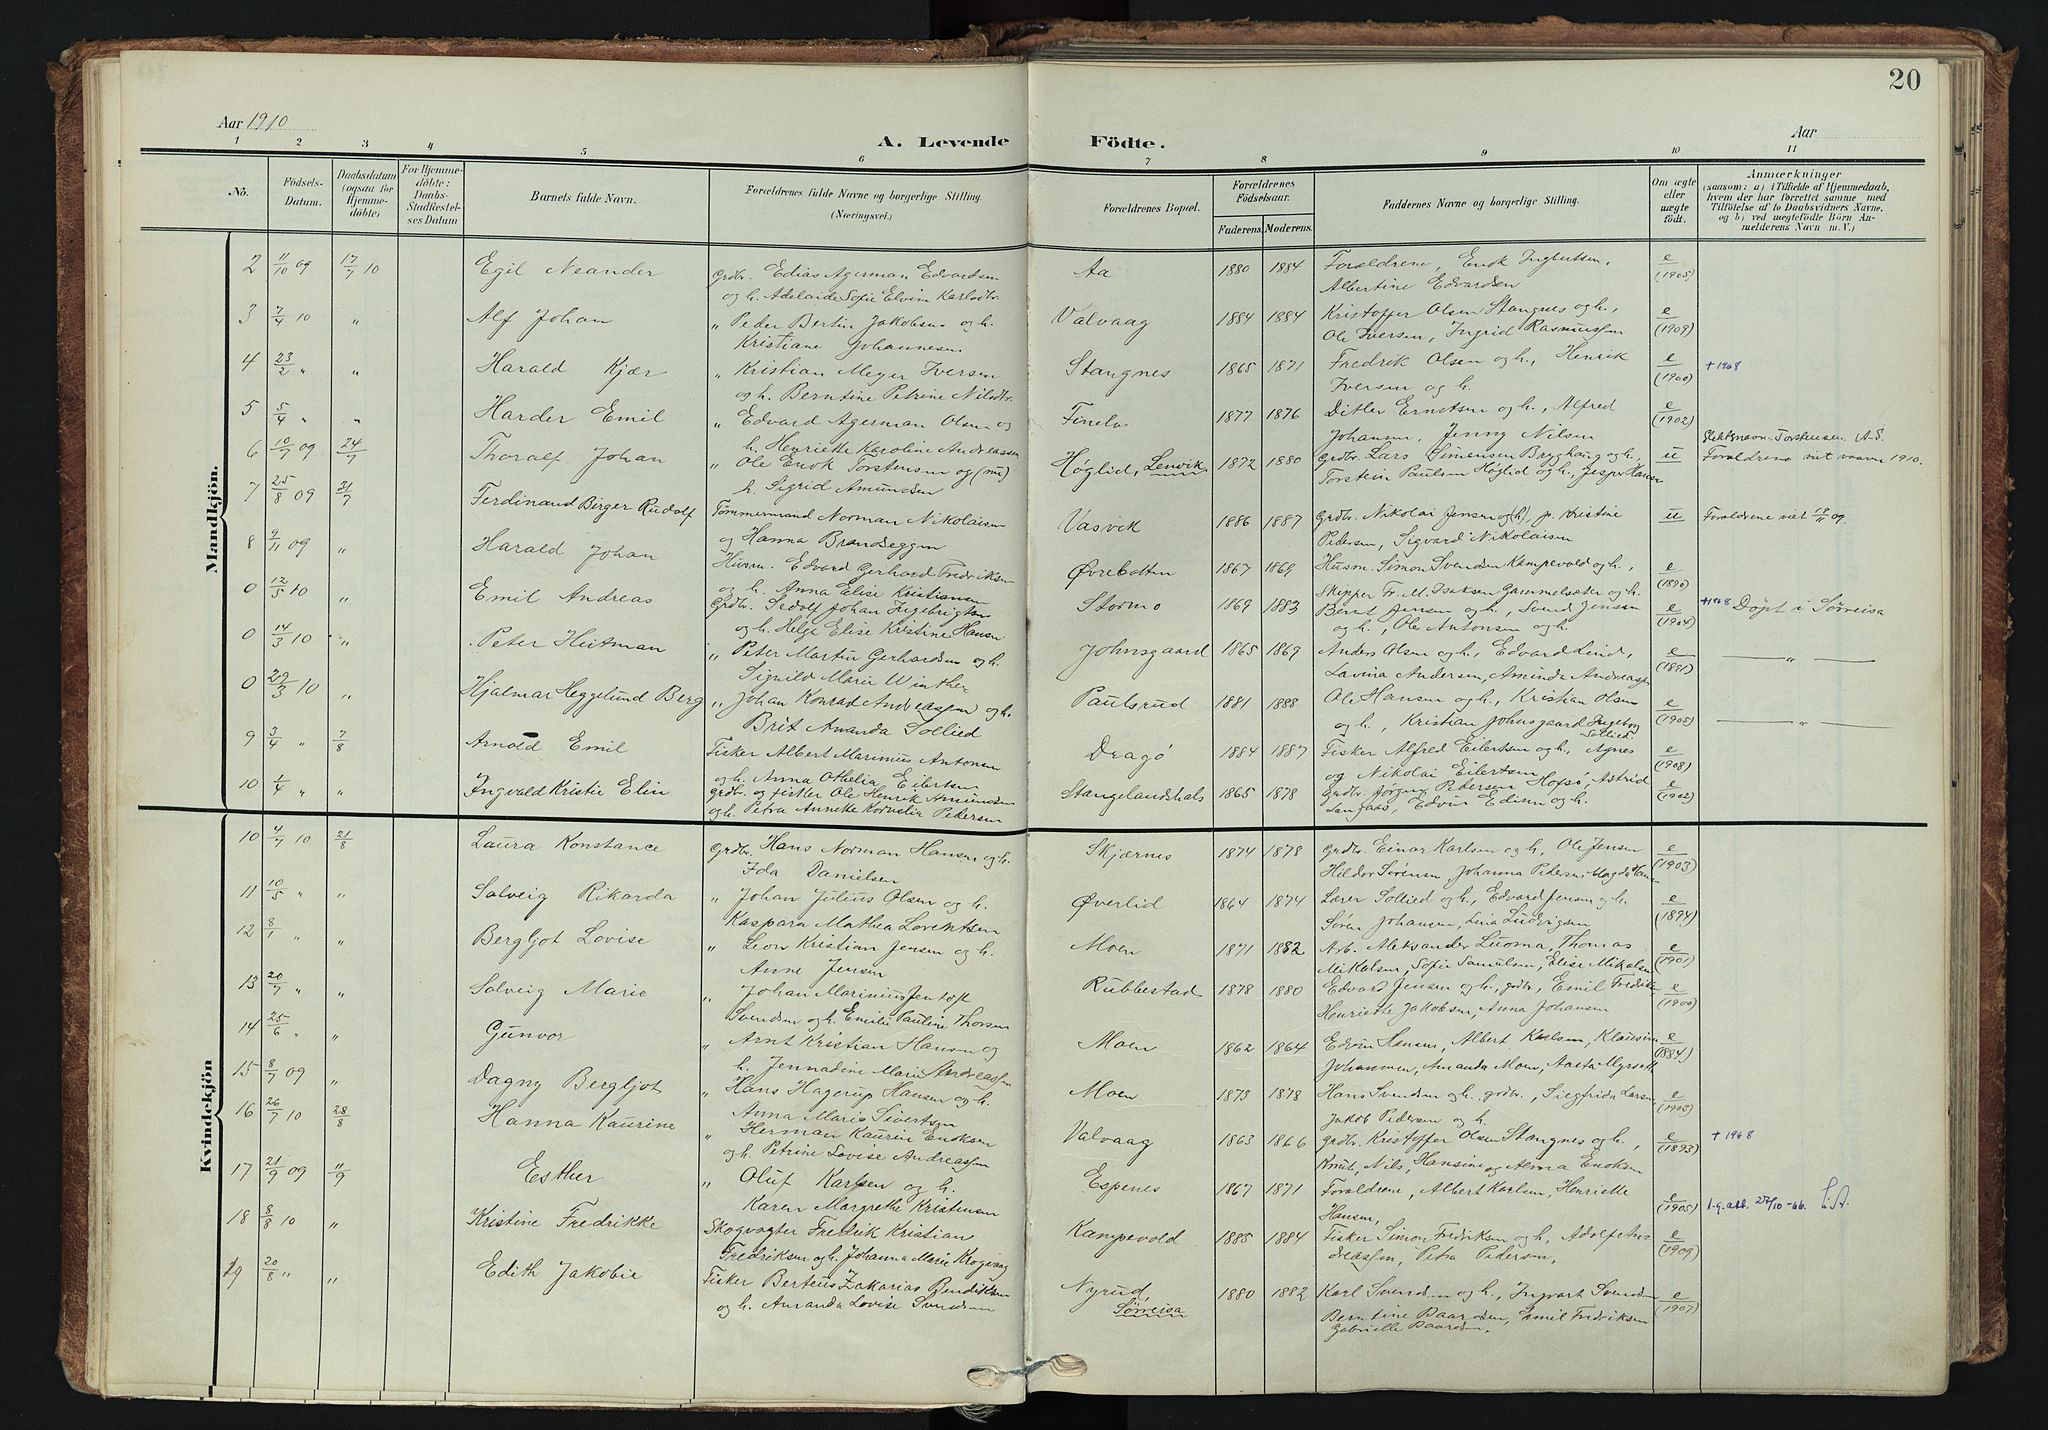 20
Aar 1910
A. Levende Födte.
Aar
1 2 3 4 5 6 7 8 9 10 11
No.
Födsels-Datum.
Daabsdatum (ogsaa for Hjemme-döbte)
For Hjemme-döbte: Daabs-Stadfæstel-ses Datum
Barnets fulde Navn.
Forældrenes fulde Navne og borgerlige Stilling. (Næringsvei.)
Forældrenes Bopæl.
Forældrenes Födselsaar.
Faderens. Moderens.
Faddernes Navne og borgerlige Stilling.
Om ægte eller uægte födt.
Anmærkninger
(saasom: a) i Tilfælde af Hjemmedaab, hvem der har forrettet samme med Tilföielse af to Daabsvidners Navne, og b) ved uegtefödte Börn An-melderens Navn m. V.)
Mandkjön.
2 11/10 09 17/7 10 Egil Neander Grdbr. Edias Agerman Edvardsen og h. Adelaide Sofie Elvine Karlsdtr. Aa 1880 1884 Forældrene, Enok Ingbertsen, Albertine Edvardsen e (1905)
3 7/4 10 " Alf Johan " Peder Bertin Jakobsen og h. Kristiane Johannesen Valvaag 1884 1884 Kristoffer Olsen Stangnes og h., Ole Iversen, Ingrid Rasmussen e (1909)
4 23/2 " " Harald Kjær " Kristian Meyer Iversen og h. Berntine Petrine Nilsdtr. Stangnes 1865 1871 Fredrik Olsen og h., Henrik Iversen og h. e (1900) + 1968
5 5/4 " " Harder Emil " Edvard Agerman Olsen og h. Henriette Karoline Andreassen Finelv 1877 1876 Ditlev Ernstsen og h., Alfred Johansen, Jenny Nilsen e (1902)
6 10/7 09 24/7 Thoralf Johan " Ole Enok Torstensen og (nu) h. Sigrid Amundsen Høglid, Lenvik 1872 1880 Grdbr. Lars Simensen Bryghaug og h., Torstein Paulsen Høglid og h., Jesper Hansen u Slektsnavn: Torstensen. A.S. Forældrene viet 1910.
7 25/8 09 31/7 Ferdinand Birger Rudolf Tømmermand Norman Nikolaisen og Hanna Brandeggen Vasvik 1886 1887 Grdbr. Nikolai Jensen og (h), p. Kristine Pedersen, Sigvard Nikolaisen u Forældrene viet 12/11 09.
8 9/11 09 " Harald Johan Husm. Edvard Gerhard Fredriksen og h. Anna Elise Kristiansen Øvrebotten 1867 1869 Husm. Simon Svendsen Kampevold og h., Skipper Fr. M. Isaksen Gammelsæter og h. e (1890)
0 12/5 10 " Emil Andreas Grdbr. Sedolf Johan Ingebrigtsen og h. Helga Elise Kristine Hansen Stormo 1869 1883 Bernt Jensen og h., Svend Jensen og h., Ole Antonsen og h. e (1904) + 1968 Døpt i Sørreisa
0 14/3 10 " Peter Heitman " Peter Martin Gerhardsen og h. Signild Marie Winther Johnsgaard 1865 1869 Anders Olsen og h., Edvard Lind, Lavina Andersen, Aminda Andreassen e (1891) — " —
0 29/3 10 " Hjalmar Heggelund Berg " Johan Konrad Andreassen og h. Brit Amanda Sollied Paulsrud 1881 1888 Ole Hansen og h., Kristian Olsen og h., Kristian Johnsgaard, Ingeborg Sollied. e (1905) — " —
9 3/4 " 7/8 Arnold Emil Fisker Albert Marinius Antonsen og h. Anna Othelia Eilertsen Dragø 1884 1887 Fisker Alfred Eilertsen og h., Agnes og Nikolai Eilertsen e (1908)
10 1/4 " " Ingvald Kristie Elin Grdbr. og fisker Ole Henrik Amundsen og h. Petra Annette Kornelie Pedersen Stangelandshals 1865 1878 Grdbr. Jørgen Pedersen Hofsø, Astrid Langaas, Edvin Edisen og h. e (1902)
Kvindekjön
10 4/7 10 21/8 Laura Konstance Grdbr. Hans Norman Hansen og h. Ida Danielsen Skjærnes 1874 1878 Grdbr. Einar Karlsen og h., Ole Jensen Hildor Sørensen, Johanna Pedersen, Magda e (1903)
11 10/5 " " Solveig Rikarda " Johan Julius Olsen og h. Kaspara Mathea Lorentsen Øverlid 1864 1874 Lærer Sollied og h., Edvard Jensen og h. Søren Johansen, Lina Ludvigsen e (1894)
12 8/1 " " Bergljot Lovise " Leon Kristian Jensen og h. Anne Jensen Moen 1871 1882 Arb. Aleksander Luoma, Thomas Mikalsen, Sofie Samulsen, Elise Mikalsen e (1901)
13 20/7 " " Solveig Marie " Johan Marinius Jentoft Svendsen og h. Emilie Pauline Thorsen Rubbestad 1878 1880 Edvard Jensen og h., grdbr., Emil Fredriksen Henriette Jakobsen, Anna Johansen e (1900)
14 25/6 " " Gunvor " Arnt Kristian Hansen og h. Jennadine Marie Andreassen Moen 1862 1864 Edvin Hansen, Albert Karlsen, Klausine Johannesen, Amanda Moen, Aasta Myrseth e (1884)
15 8/7 09 " Dagny Bergljot " Hans Hagerup Hansen og h. Anna Marie Sivertsen Moen 1873 1878 Hans Svendsen og h., grdbr., Siegfrida Larsen, Jakob Pedersen og h. e (1903)
16 26/7 10 28/8 Hanna Kaurine " Herman Kaurin Enoksen og h. Petrine Lovise Andreassen Valvaag 1863 1866 Grdbr. Kristoffer Olsen Stangnes og h., Knut, Nils, Hansine og Alma Enoksen e (1893) + 1968
17 21/9 09 11/9 Esther " Oluf Karlsen og h. Karen Margrethe Kristensen Espenes 1867 1871 Forældrene, Albert Karlsen, Henriette Hansen, e (1905) 1. g. att. 27/10-66.
18 8/8 10 " Kristine Fredrikke Skogvogter Fredrik Kristian Fredriksen og h. Johanna Marie Krogvaag Kampevold 1885 1884 Fisker Simon Fredriksen og h., Adolf Andreassen, Petra Pedersen, e (1909)
19 20/8 " " Edith Jakobie Fisker Berteus Zakarias Bendiksen og h. Amanda Lovise Svendsen Nyrud, Sørreisa 1880 1882 Karl Svendsen og h., Ingvart Svendsen Berntine Baardsen, Emil Fredriksen Gabrielle Baardsen, e (1907)